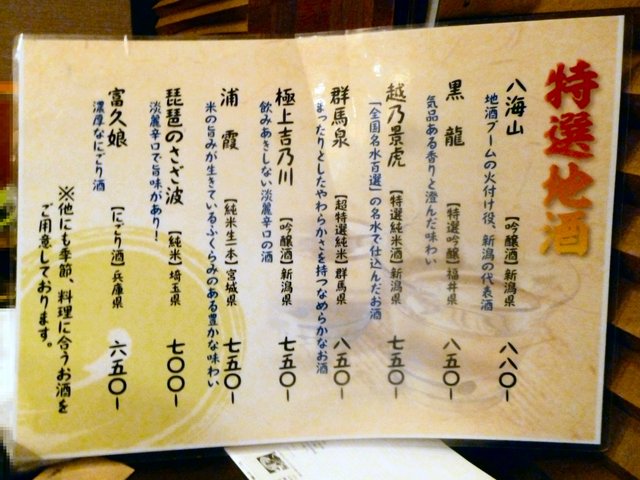 特選地酒
八海山 【吟醸酒】新潟県 八八〇－
地酒ブームの火付け役、新潟の代表酒
黒龍 【特選吟醸】福井県 八五〇－
気品ある香りと澄んだ味わい
越乃景虎 【特選純米酒】新潟県 七五〇－
「全国名水百選」の名水で仕込んだお酒
群馬泉 【超特選純米】群馬県 八五〇－
まったりとしたやわらかさを持つなめらかなお酒
極上吉乃川 【吟醸酒】新潟県 七五〇－
飲みあきしない淡麗辛口の酒
浦霞 【純米生一本】宮城県 七五〇－
米の旨みが生きているふくらみのある豊かな味わい
琵琶のさざ波 【純米】埼玉県 七〇〇－
淡麗辛口で旨味があり！
富久娘 【にごり酒】兵庫県 六五〇－
濃厚なにごり酒
※他にも季節、料理に合うお酒を
ご用意しております。